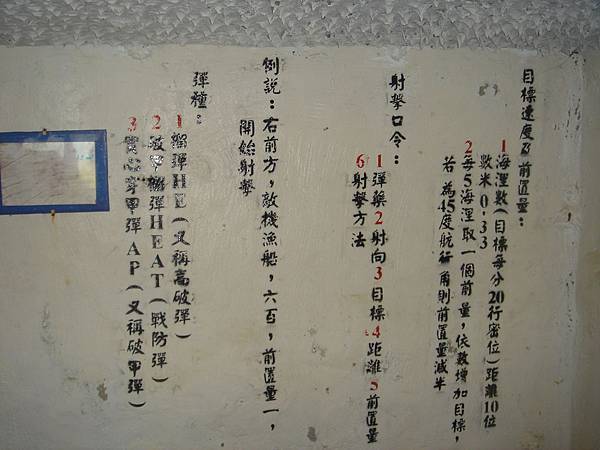 目標速度及前置量：
1海浬數(目標每分20行密位)距離10位
數米0.33
2每5海浬取一個前量，依數增加目標，
若為45度航行角則前置量減半
射擊口令：
1彈藥2射向3目標4距離5前置量
6射擊方法
例說：右前方，敵機漁船，六百，前置量一，
開始射擊
彈種：
1榴彈HE(又稱高破彈)
2破甲榴彈HEAT(戰防彈)
3實心穿甲彈AP(又稱破甲彈)